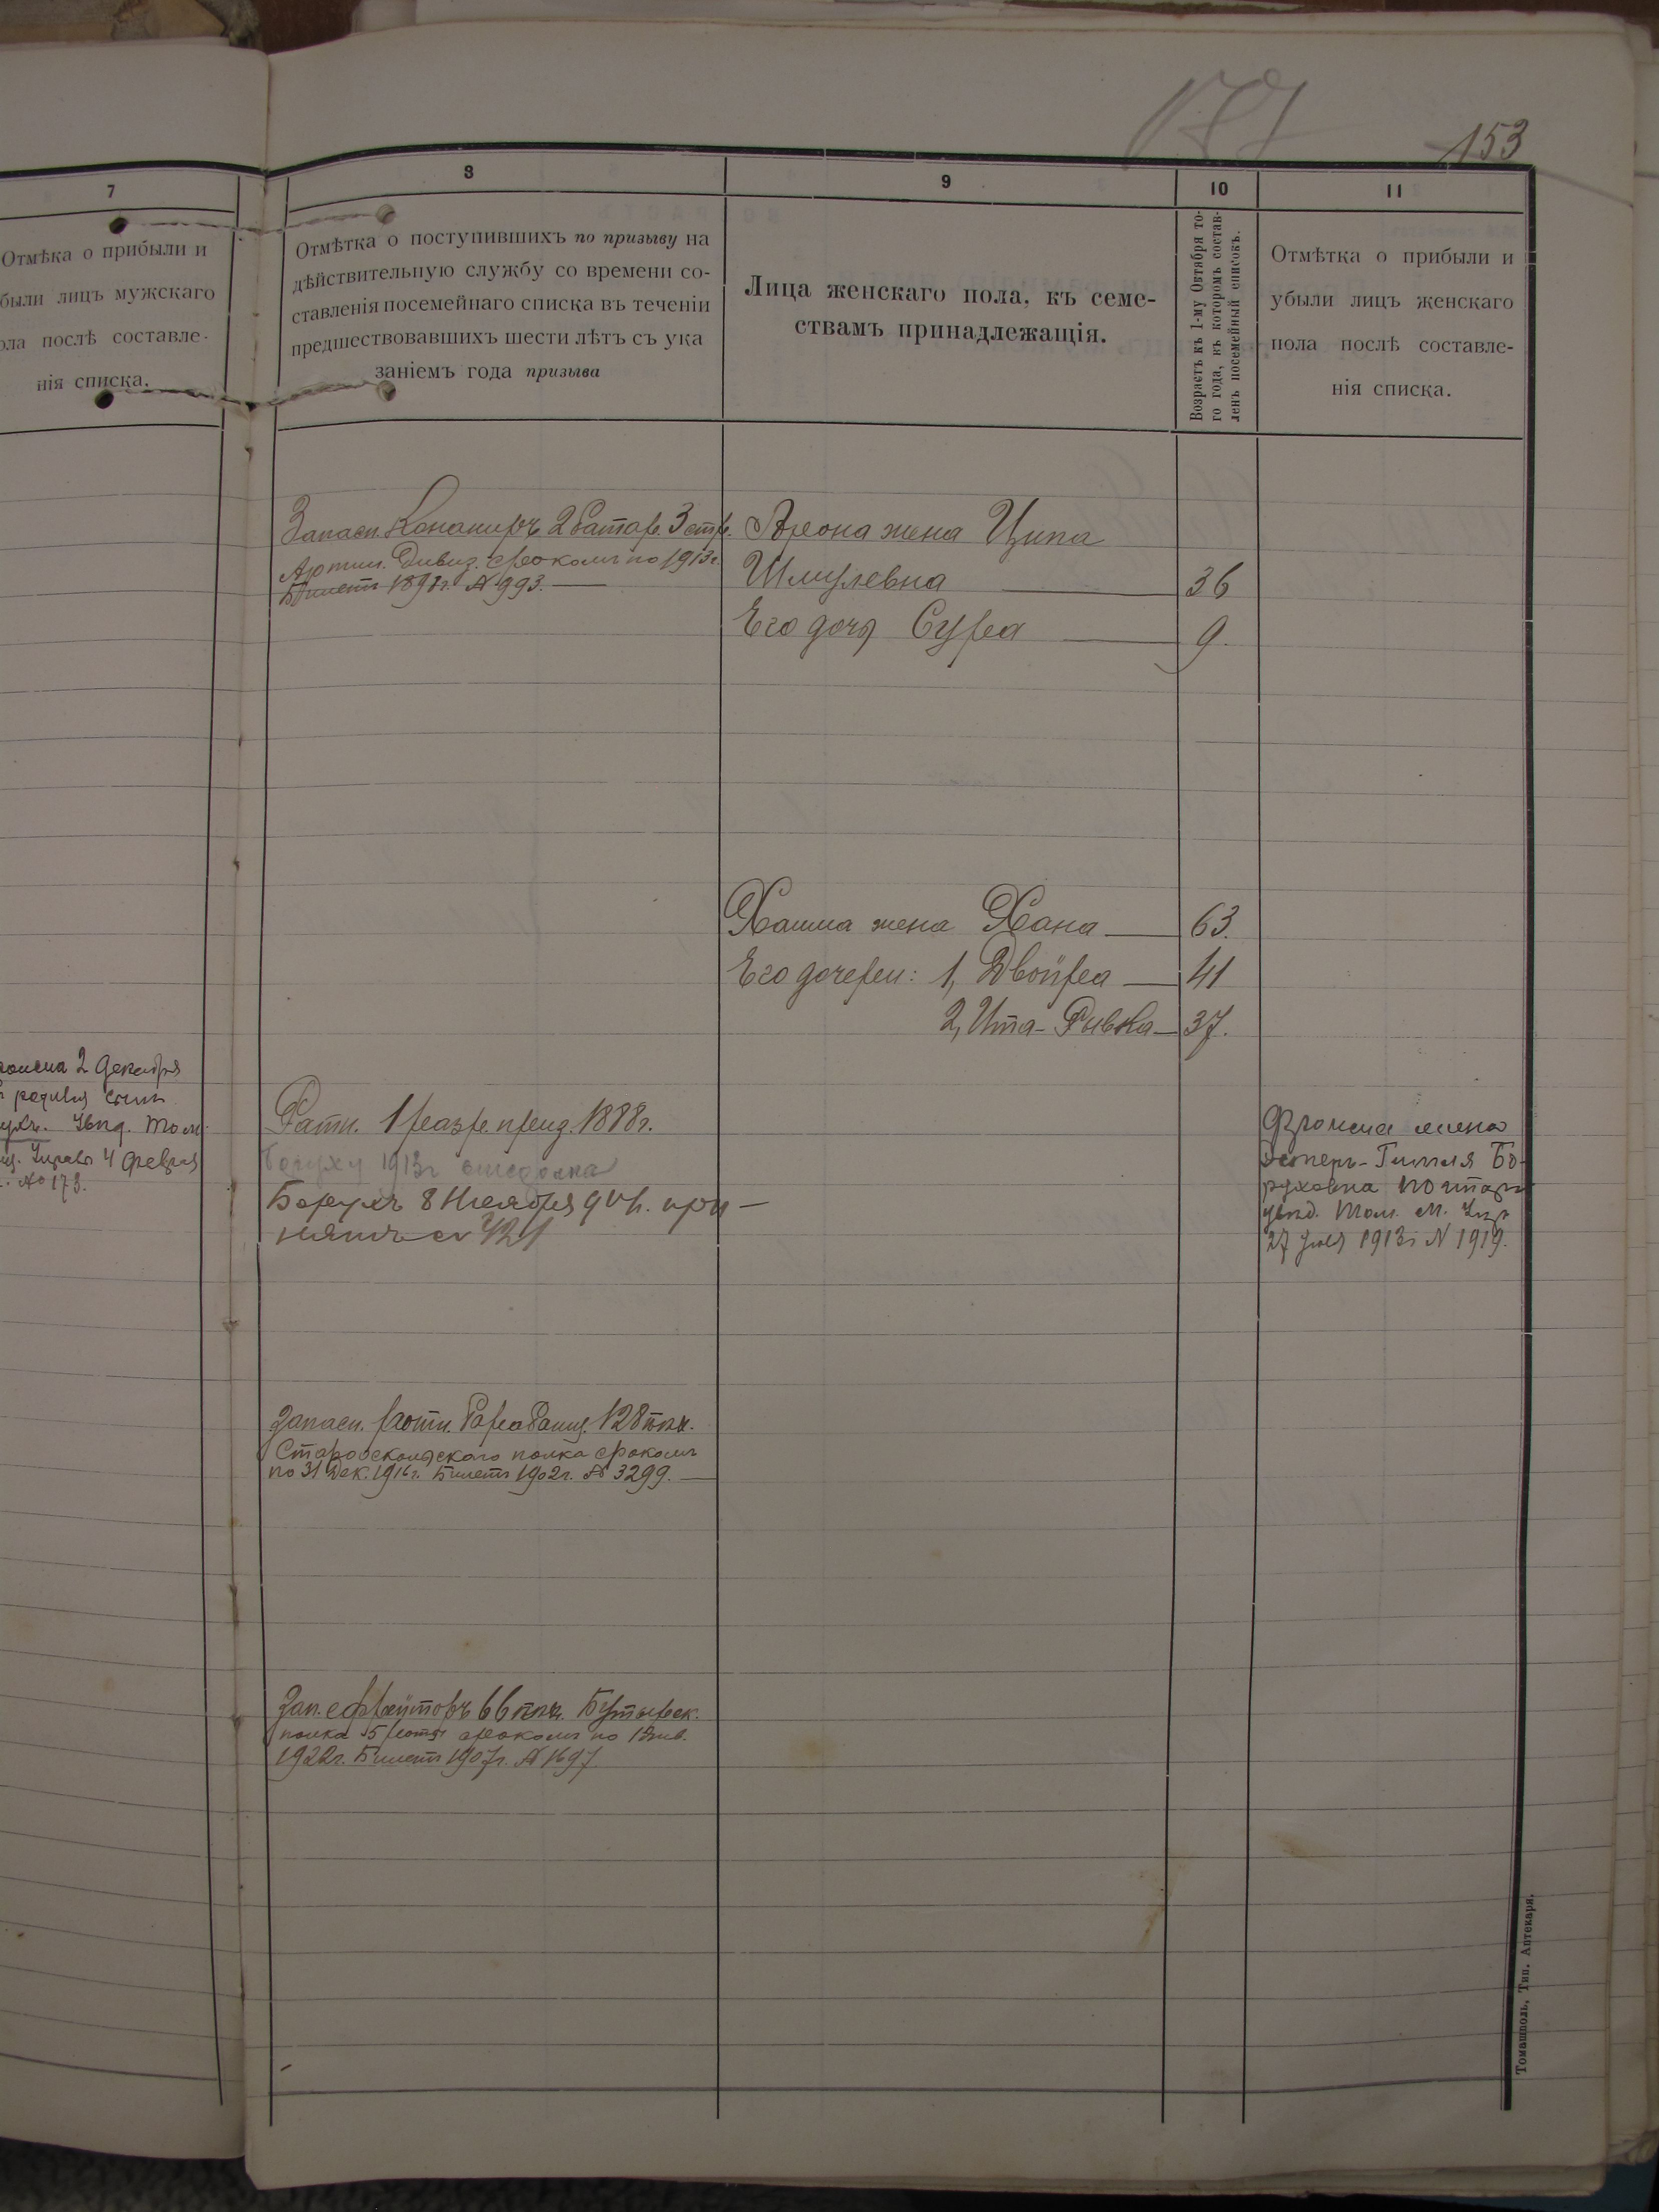 153
7
8
9
10
11
Отмѣка о прибыли и
были лицъ мужскаго
ола послѣ составле-
нія списка.
Отмѣтка о поступившихъ по призыву на
дѣйствительную службу со времени со-
ставленія посемейнаго списка въ теченіи
предшествовавшихъ шести лѣтъ съ ука
заніемъ года призыва
Лица женскаго пола, къ семе-
ствамъ принадлежащія.
Возрастъ къ 1-му Октября то-
го года, въ которомъ состав-
ленъ посемейный списокъ.
Отмѣтка о прибыли и
убыли лицъ женскаго
пола послѣ составле-
нія списка.
Запасн. Канониръ 2 батар. 3 стр.
Артил. Дивиз. срокомъ по 1913г.
Билетъ 189 г. № 993.
Арона жена Ципа
Шмулевна 36
Его дочь Сура 9.
Хаима жена Хана 63.
Его дочери: 1, Двойра 41
2, Ита-Рывка 37.
2 Декабря
родился сынъ
Увѣд. Том.
Управы 4 Февраля
№ 173.
Ратн. 1 разр. приз. 1888г.
Боруху 1913г
Борухъ 8 Ноября 904. при-
нятъ 421
Фроима жена
Эстеръ-Гитля Бо-
руховна
увѣд. Том. М. Упр
27 1913г N 1919.
Запасн. ротн. барабанщ. 128 пѣх.
Старооскольскаго полка срокомъ
по 31 Дек. 1916г. Билетъ 1902г. № 3299.
Зап. ефрейторъ 66 пѣх. Бутырск.
полка 5 роты срокомъ по 1 Янв.
1922г. Билетъ 1907г. № 1697.
Томашполь, Тип. Аптекаря.